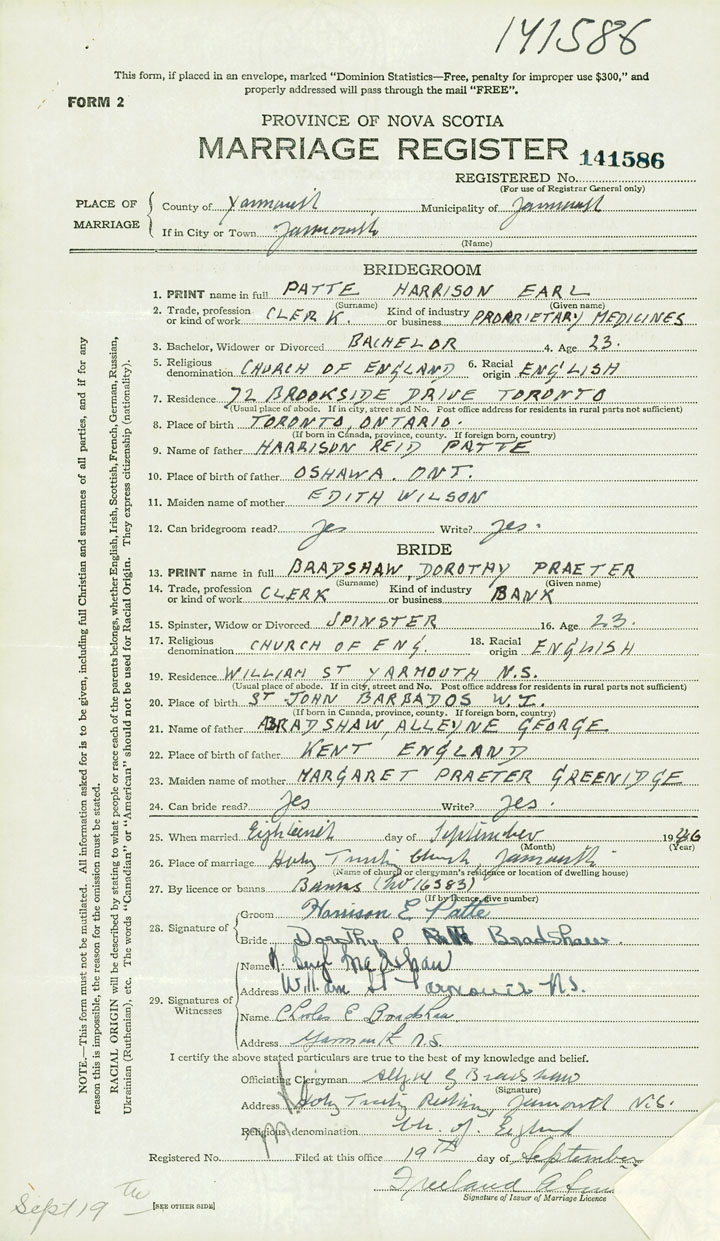 141586
This form, if placed in an envelope, marked "Dominion Statistics—Free, penalty for improper use $300," and
properly addressed will pass through the mail "FREE".
FORM 2
PROVINCE OF NOVA SCOTIA
MARRIAGE REGISTER 141586
REGISTERED No.
(For use of Registrar General only)
PLACE OF MARRIAGE
County of Yarmouth Municipality of Yarmouth
If in City or Town Yarmouth
(Name)
BRIDEGROOM
1. PRINT name in full PATTE HARRISON EARL
(Surname) (Given name)
2. Trade, profession or kind of work CLERK. Kind of industry or business PROPRIETARY MEDICINES
3. Bachelor, Widower or Divorced BACHELOR 4. Age 23.
5. Religious denomination CHURCH OF ENGLAND 6. Racial origin ENGLISH
7. Residence 72 BROOKSIDE DRIVE TORONTO
(Usual place of abode. If in city, street and No. Post office address for residents in rural parts not sufficient)
8. Place of birth TORONTO, ONTARIO.
(If born in Canada, province, county. If foreign born, country)
9. Name of father HARRISON REID PATTE
10. Place of birth of father OSHAWA. ONT.
11. Maiden name of mother EDITH WILSON
12. Can bridegroom read? Yes Write? Yes.
BRIDE
13. PRINT name in full BRADSHAW, DOROTHY PRAETER
(Surname) (Given name)
14. Trade, profession or kind of work CLERK Kind of industry or business BANK
15. Spinster, Widow or Divorced SPINSTER 16. Age 23.
17. Religious denomination CHURCH OF ENG. 18. Racial origin ENGLISH
19. Residence WILLIAM ST YARMOUTH N.S.
(Usual place of abode. If in city, street and No. Post office address for residents in rural parts not sufficient)
20. Place of birth ST JOHN BARBADOS W.I.
(If born in Canada, province, county. If foreign born, country)
21. Name of father BRADSHAW, ALLEYNE GEORGE
22. Place of birth of father KENT ENGLAND
23. Maiden name of mother MARGARET PRAETER GREENIDGE
24. Can bride read? Yes Write? Yes.
25. When married Eighteenth day of September 1946
(Month) (Year)
26. Place of marriage Holy Trinity Church, Yarmouth
(Name of church or clergyman's residence or location of dwelling house)
27. By licence or banns Banns (No 16383)
(If by licence, give number)
28. Signature of
Groom Harrison E Patte
Bride Dorothy P Bradshaw.
29. Signatures of Witnesses
Name
Address William St Yarmouth N.S.
Name Charles E Bradshaw
Address Yarmouth N.S.
I certify the above stated particulars are true to the best of my knowledge and belief.
Officiating Clergyman Alleyne G Bradshaw
(Signature)
Address Holy Trinity Rectory, Yarmouth N.S.
Religious denomination Ch. of England
Registered No. Filed at this office 19TH day of September
Freeland A
Signature of Issuer of Marriage Licence
[SEE OTHER SIDE]
Sept 19th
NOTE.—This form must not be mutilated. All information asked for is to be given, including full Christian and surnames of all parties, and if for any
reason this is impossible, the reason for the omission must be stated.
RACIAL ORIGIN will be described by stating to what people or race each of the parents belongs, whether English, Irish, Scottish, French, German, Russian,
Ukrainian (Ruthenian), etc. The words "Canadian" or "American" should not be used for Racial Origin. They express citizenship (nationality).